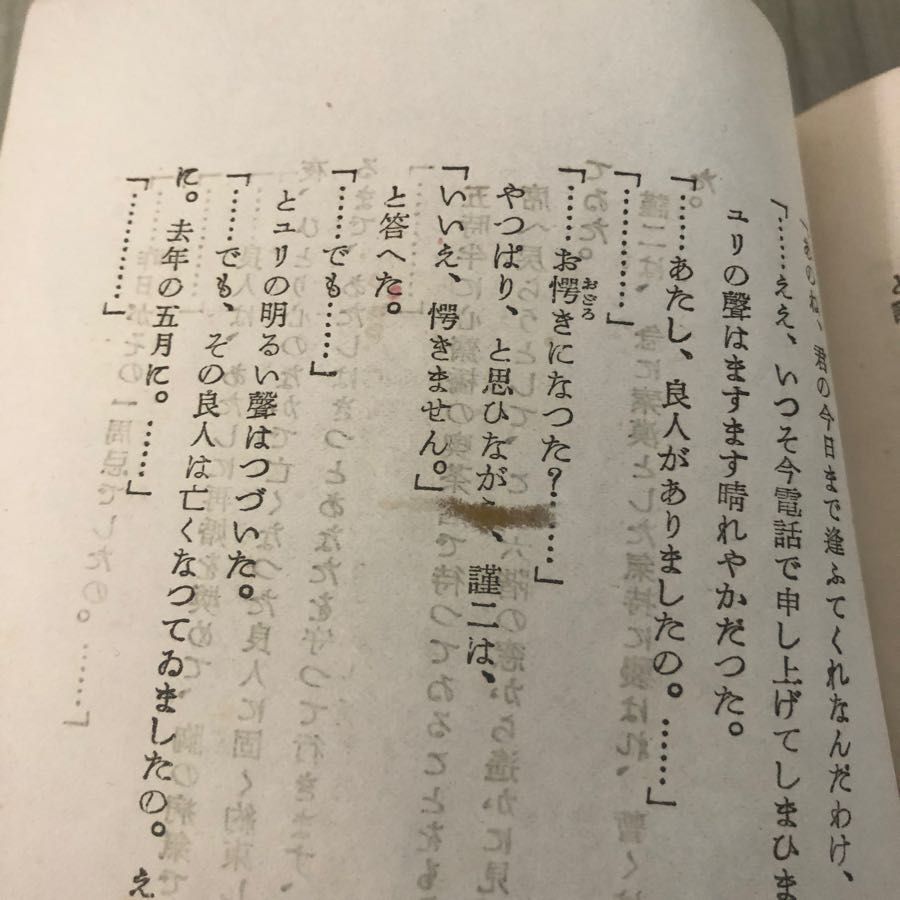 あのね、君の今日まで逢ふてくれなんだわけ、
「……ええ、いつそ今電話で申し上げてしまひま
ユリの聲はますます晴れやかだつた。
「……あたし、良人がありましたの。……」
「………」
「……お愕きになつた？………」
おどろ
やつぱり、と思ひなが、謹二は、
「いいえ、愕きません。」
と答へた。
「……でも……」
とユリの明るい聲はつづいた。
「……でも、その良人は亡くなつてゐましたの。え
に。去年の五月に。……」
「………」